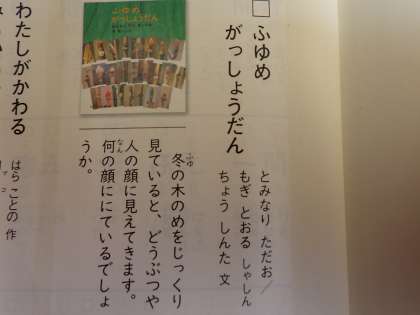 ふゆめ
がっしょうだん
とみなり ただお／
もぎ とおる しゃしん
ちょう しんた 文
ふゆめ
がっしょうだん
冬の木のめをじっくり
見ていると、どうぶつや
人の顔に見えてきます。
何の顔ににているでしょ
うか。
わたしがかわる
はら ことの 作